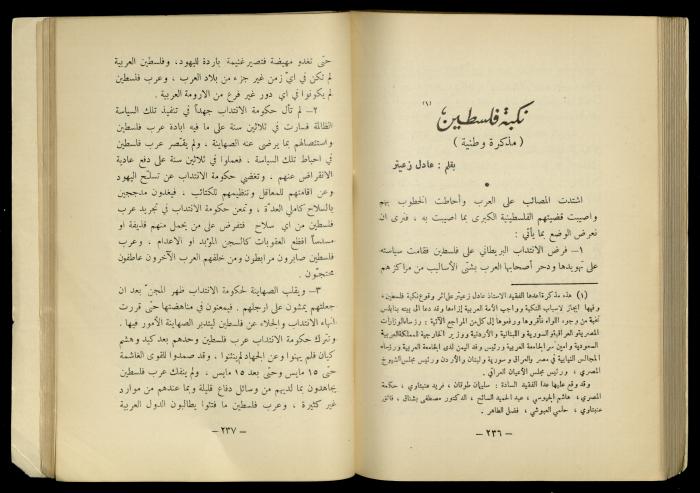 (١)
نكبة فلسطين
( مذكرة وطنية )
بقلم : عادل زعيتر
•
اشتدت المصائب على العرب وأحاطت الخطوب بهم
واصيبت قضيتهم الفلسطينية الكبرى بما اصيبت به ، فنرى ان
نعرض الوضع بما يأتي :
١– فرض الانتداب البريطاني على فلسطين فقامت سياسته
على تهويدها ودحر أصحابها العرب بشتى الأساليب من مراكزهم
(١) هذه مذكرة اعدها الفقيد الاستاذ عادل زعيتر على اثر وقوع نكبة فلسطين ،
وفيها ايجاز لاسباب النكبة وواجب الأمة العربية إزاءها وقد دعا الى بيته بنابلس
نخبة من وجوه اللواء فأقروها ورفعوها إلى كل من المراجع الآتية : رؤساء الوزارات
المصرية والعراقية والسورية واللبنانية والأردنية ووزير الخارجية للمملكة العربية
السعودية وامين سر الجامعة العربية ورئيس وفد اليمن لدى الجامعة العربية ورؤساء
المجالس النيابية في مصر والعراق وسورية ولبنان والأردن ورئيس مجلس الشيوخ
المصري ، ورئيس مجلس الأعيان العراقي .
وقد وقع عليها عدا الفقيد السادة : سليمان طوقان ، فريد عنبتاوي ، حكمة
المصري ، هاشم الجيوسي ، عبد الحميد السائح ، الدكتور مصطفى بشناق ، فائق
عنبتاوي ، حلمي العبوشي ، فضل الظاهر .
– ٢٣٦ –
حتى تغدو مهيضة فتصير غنيمة باردة لليهود، وفلسطين العربية
لم تكن في أيّ زمن غير جزء من بلاد العرب ، وعرب فلسطين
لم يكونوا في اي دور غير فرع من الارومة العربية .
٢– لم تأل حكومة الانتداب جهداً في تنفيذ تلك السياسة
الظالمة فسارت في ثلاثين سنة على ما فيه ابادة عرب فلسطين
واستئصالهم بما يرضى عنه الصهاينة ، ولم يقصّر عرب فلسطين
في احباط تلك السياسة ، فعملوا في ثلاثين سنة على دفع عادية
الانقراض عنهم ، وتغضي حكومة الانتداب عن تسلّح اليهود
وعن اقامتهم للمعاقل وتنظيمهم للكتائب ، فيغدون مدججين
بالسلاح كاملي العدّة ، وتمعن حكومة الانتداب في تجريد عرب
فلسطين من اي سلاح فتفرض على من يحمل منهم قذيفة او
مسدساً افظع العقوبات كالسجن المؤبد او الاعدام . وعرب
فلسطين صابرون مرابطون ومن خلفهم العرب الآخرون عاطفون
محتجون .
٣– ويقلب الصهاينة لحكومة الانتداب ظهر المجنّ بعد ان
جعلتهم يمشون على ارجلهم . فيمعنون في مناهضتها حتى قررت
انهاء الانتداب والجلاء عن فلسطين ليتدبر الصهاينة الأمور فيها .
وتترك حكومة الانتداب عرب فلسطين وحدهم بعد كيد وهشم
كيان فلم يهنوا وعن الجهاد لم ينثنوا . وقد صمدوا للقوى الغاشمة
حتى ١٥ مايس وحتى بعد ١٥ مايس . ولم ينفك عرب فلسطين
يجاهدون بما لديهم من وسائل دفاع قليلة وبما عندهم من موارد
غير كثيرة ، وعرب فلسطين ما فتئوا يطالبون الدول العربية
– ٢٣٧ –